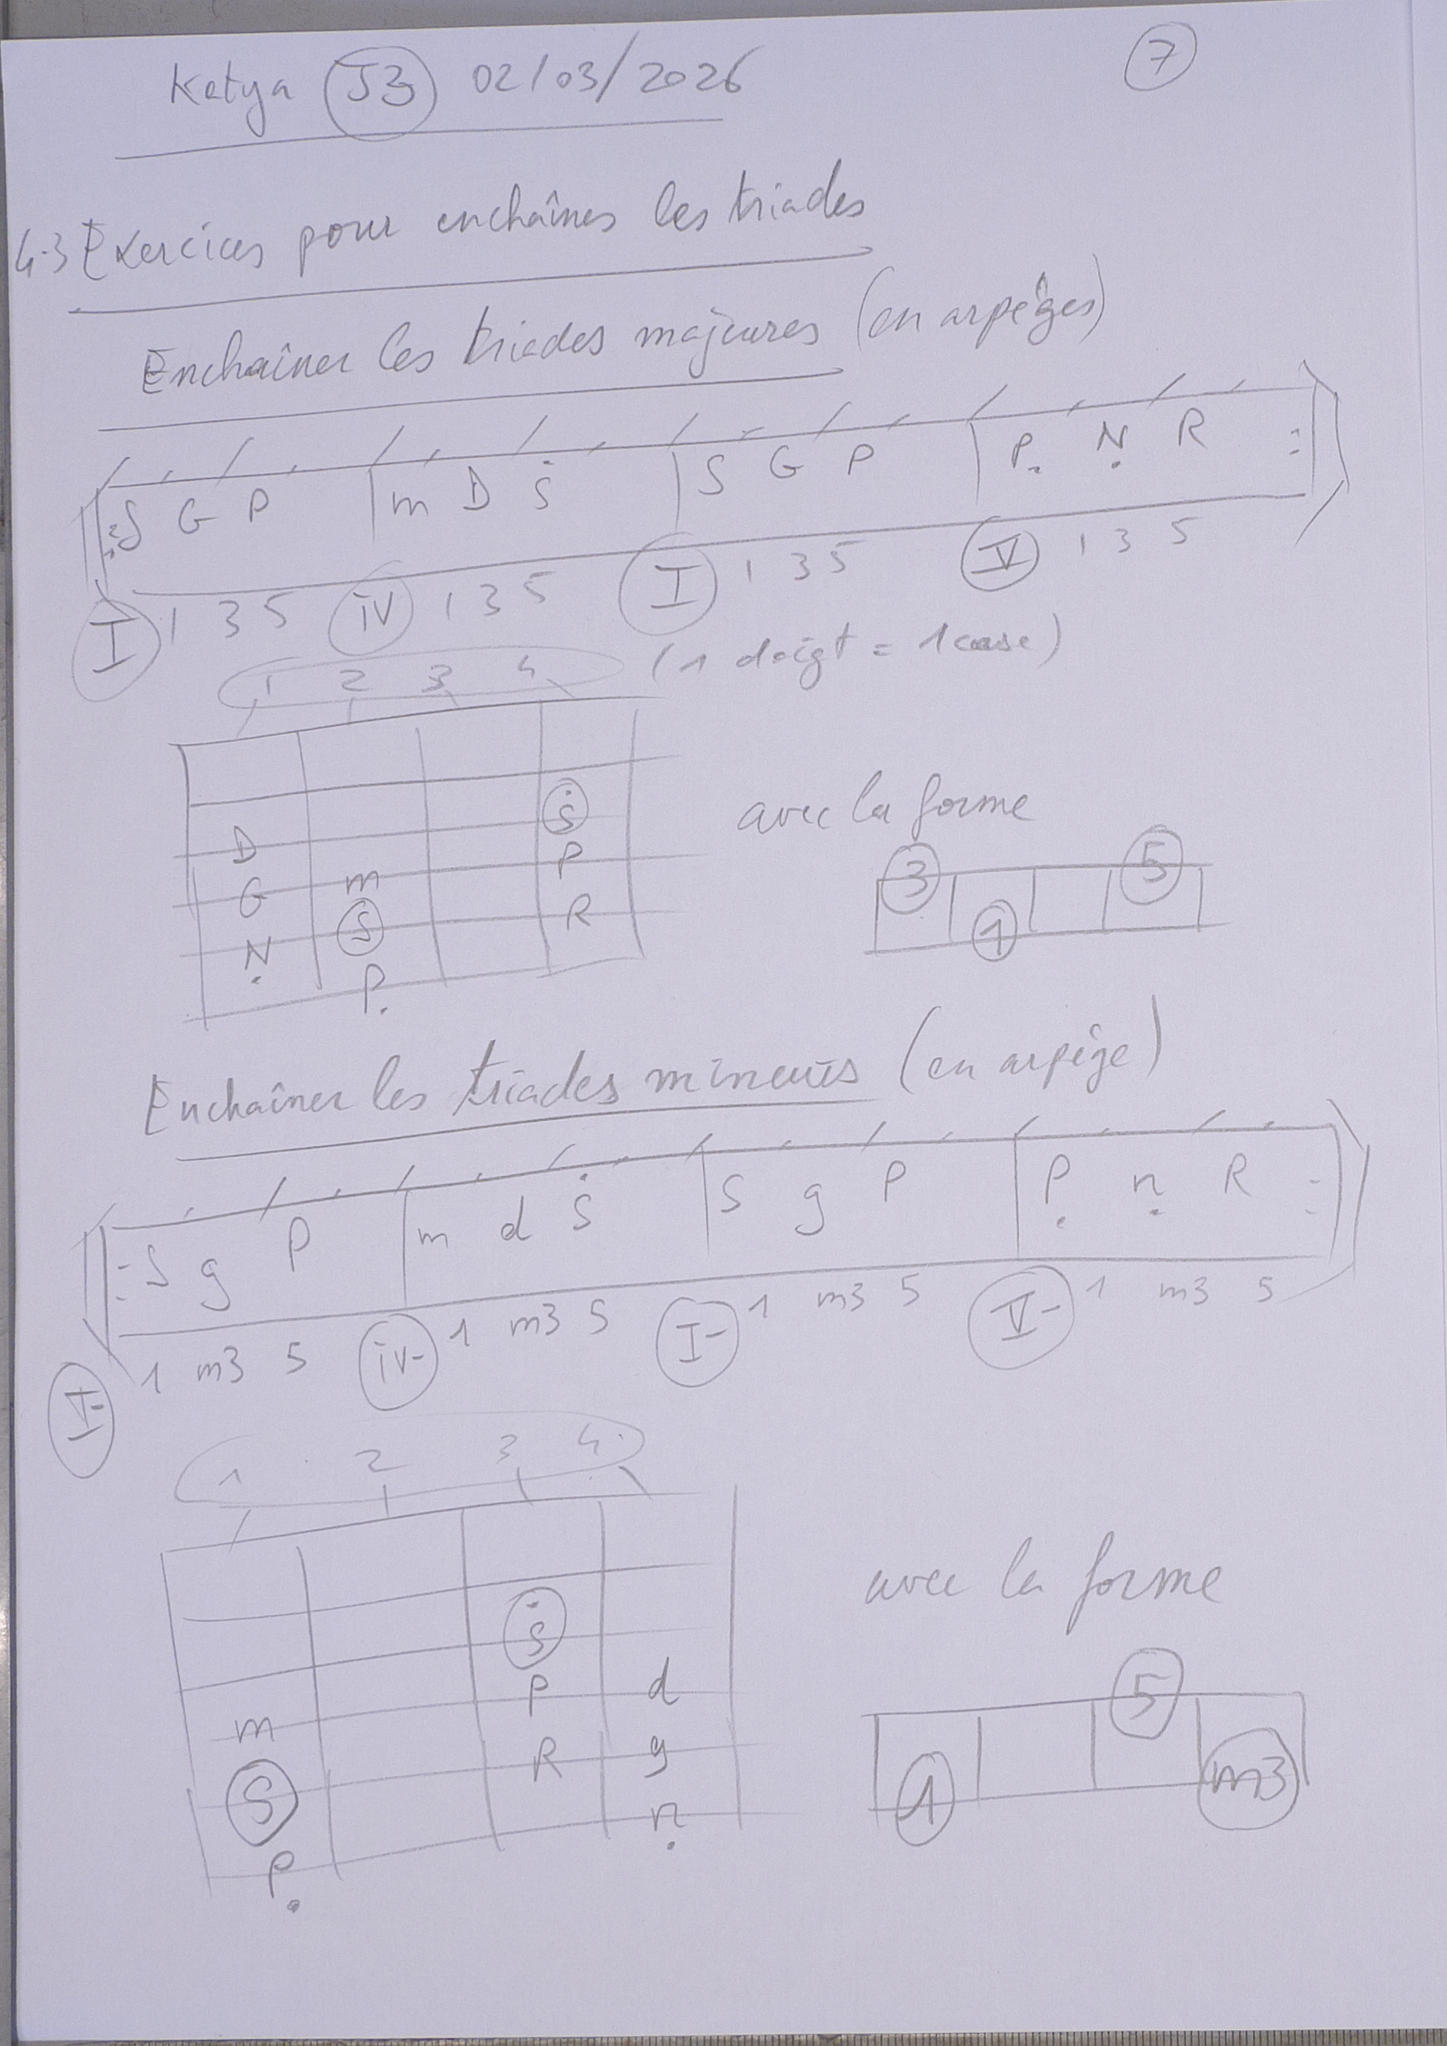 Katya J3 02/03/2026
7
4.3 Exercices pour enchaînes les triades
Enchaîner les triades majeures (en arpèges)
S G P | m D Ṡ | S G P | P. Ṇ R :
I 1 3 5 iv 1 3 5 I 1 3 5 V 1 3 5
1 2 3 4 (1 doigt = 1 case)
Ṡ
D P
G m R
Ṇ S
P.
avec la forme
3 5
1
Enchaîner les triades mineures (en arpège)
: S g P | m d Ṡ | S g P | P. ṇ R :
I- 1 m3 5 iv- 1 m3 5 I- 1 m3 5 V- 1 m3 5
1 2 3 4
Ṡ
m P d
S R g
P. ṇ
avec la forme
5
1 m3